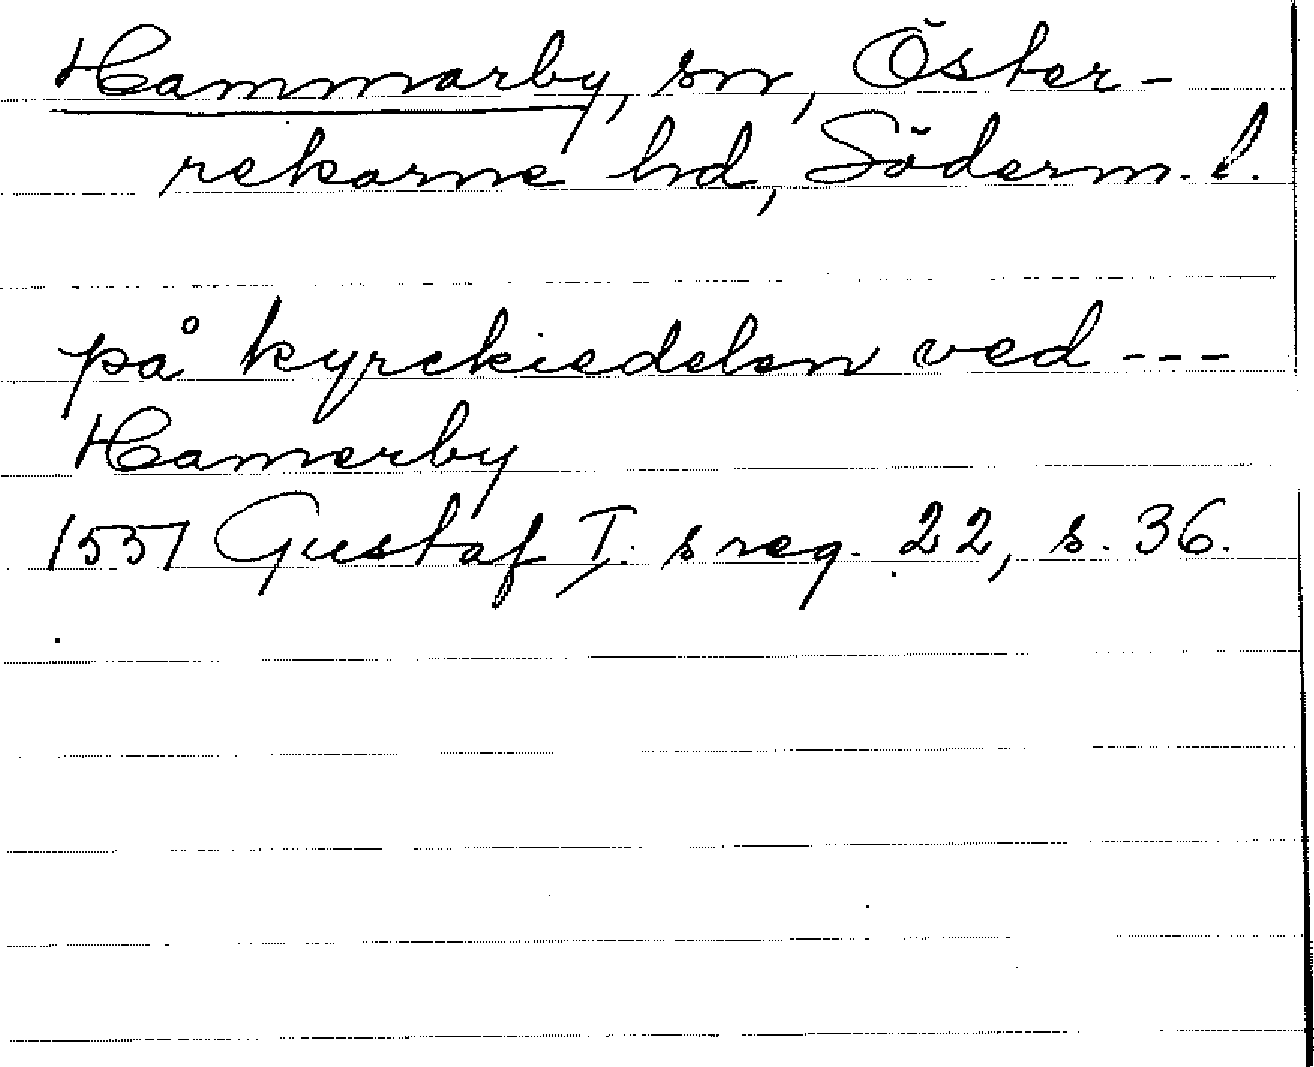 Hammarby, sn, Öster-
rekarne hd, Söderm. l.
på kyrckiedelen ved ---
Hamerby
1551 Gustaf I. s reg. 22, s. 36.